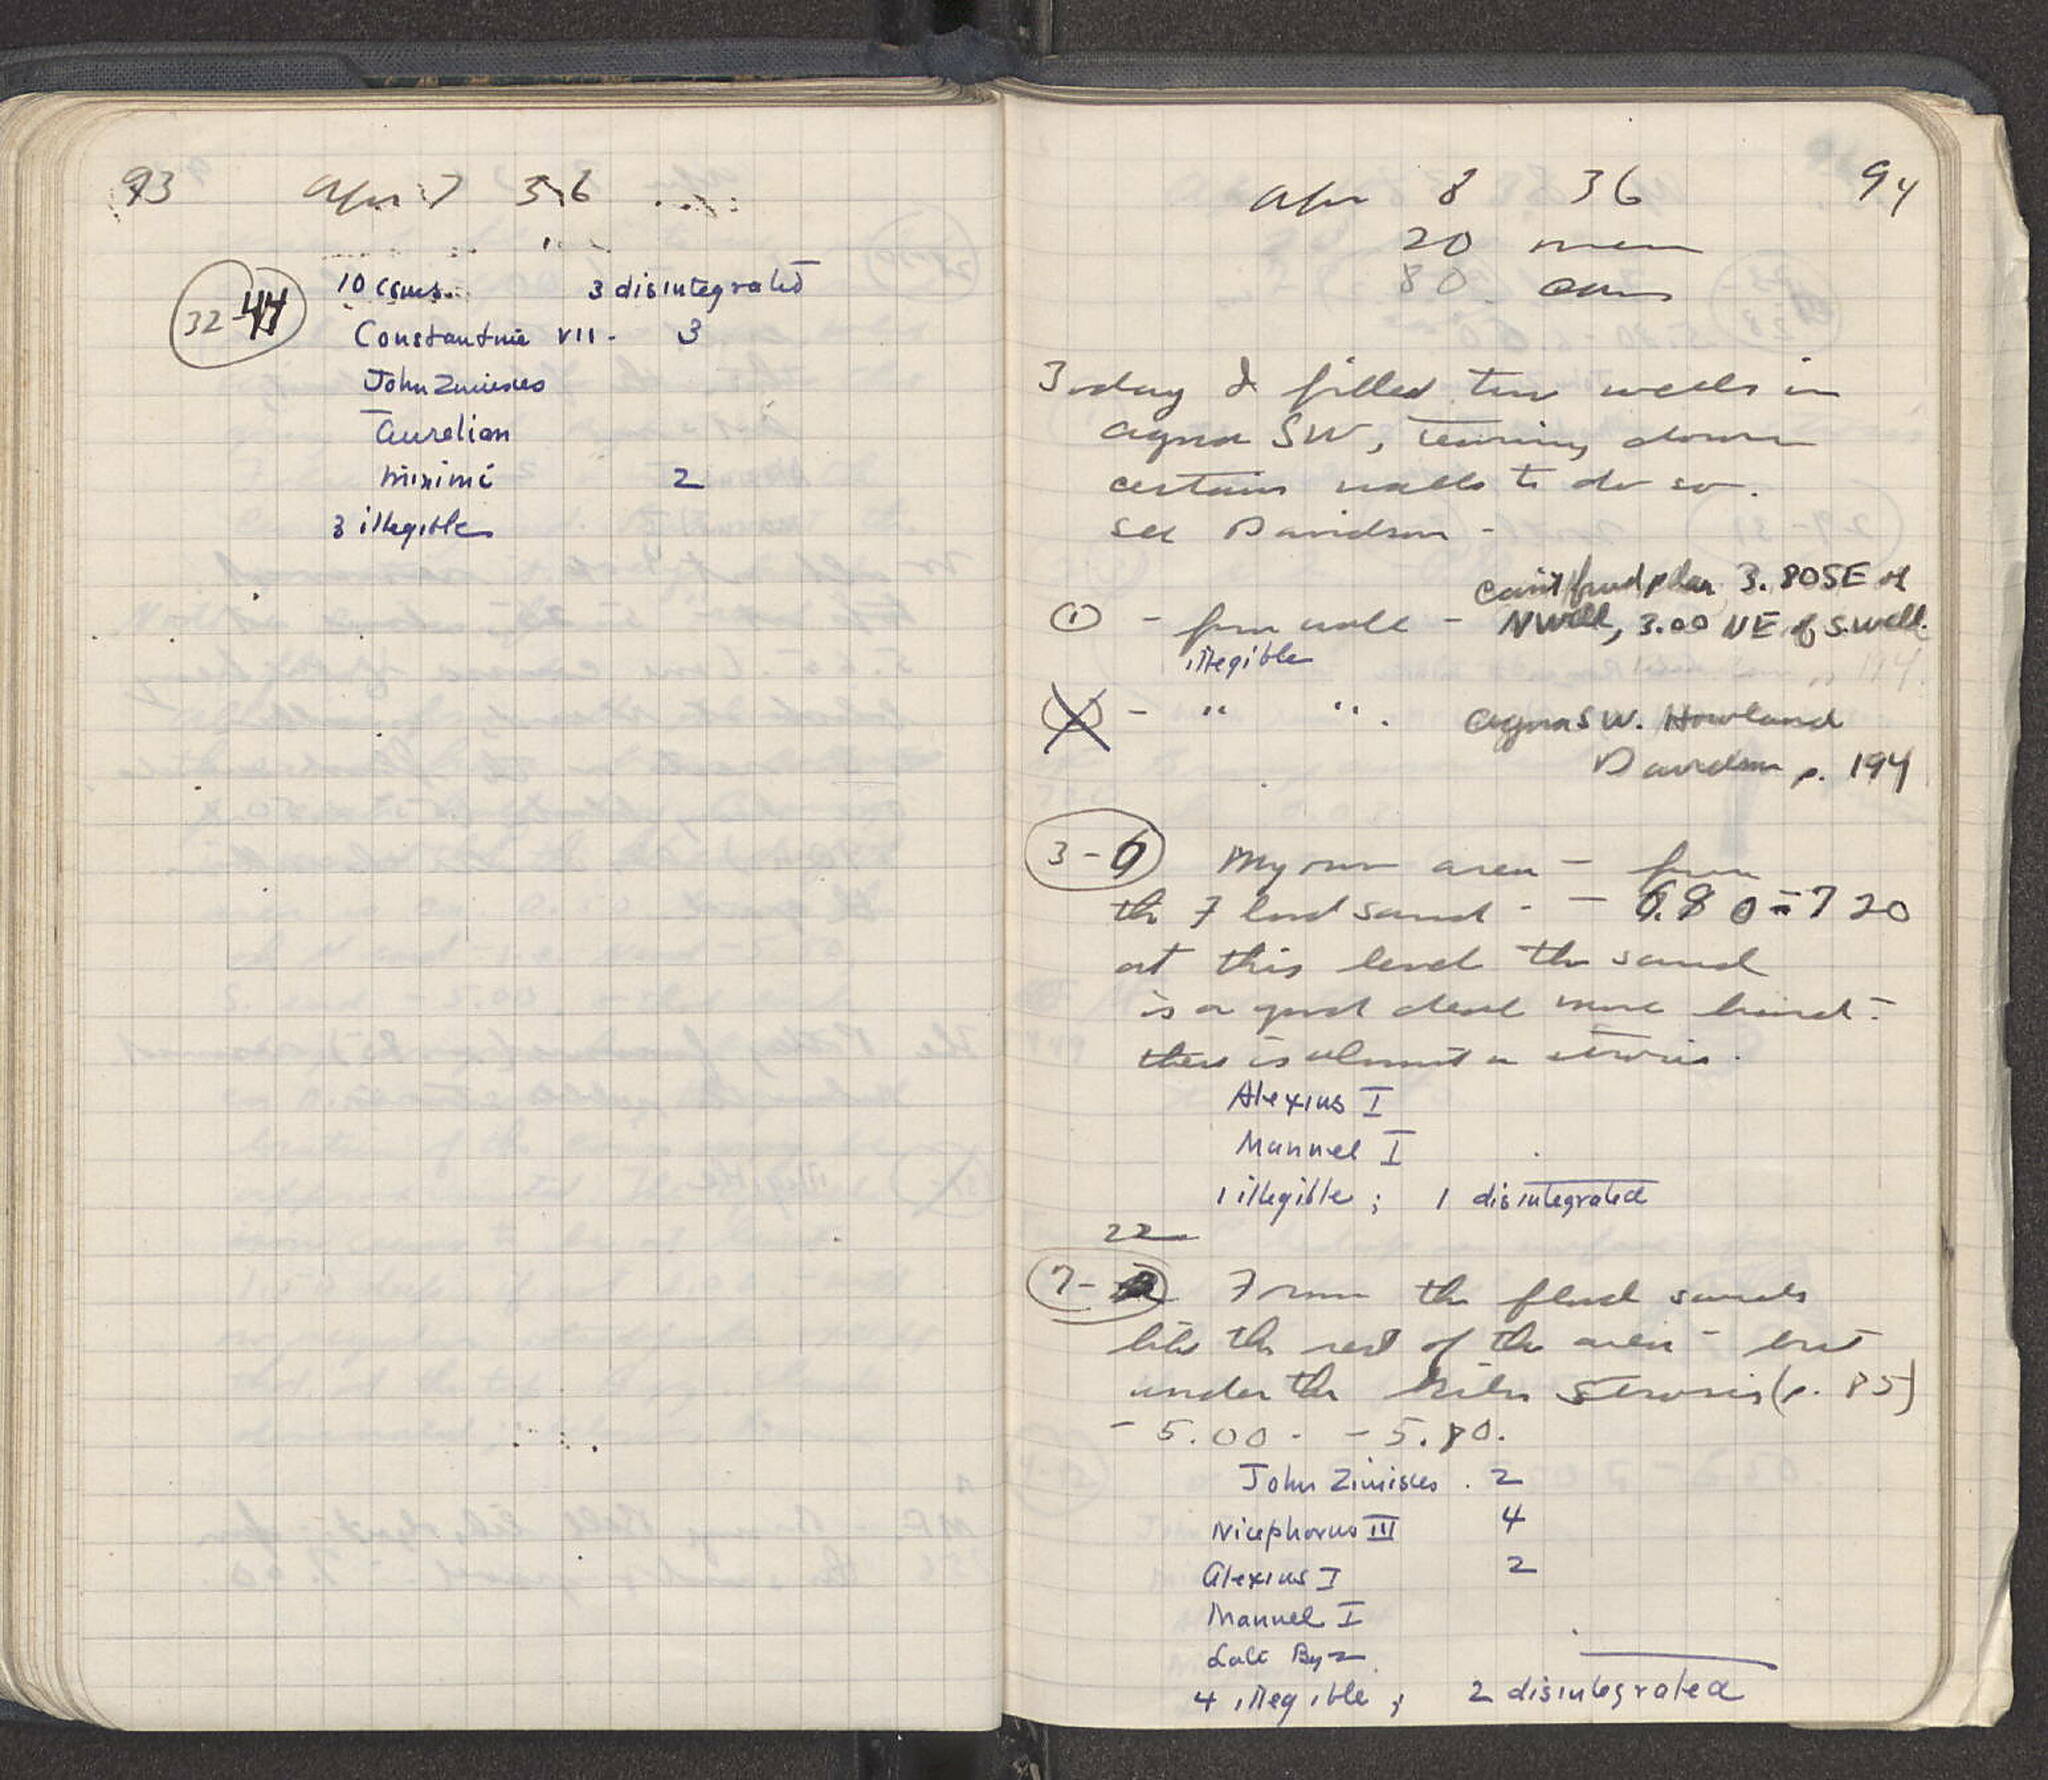 93 Apr 7 36
32-44
10 coins. 3 disintegrated
Constantine VII - 3
John Zimisces
Aurelian
Minimi 2
3 illegible
Apr 8 36 94
20 men
80 coins
Today I filled two wells in
Agora SW, tearing down
certain walls to do so.
See Davidson -
① - from wall - can't find plan 3.80 SE of
N Well, 3.00 NE of S. well.
illegible
- " " . Agora SW. Howland
Davidson p. 194
3-6 My own area - from
the Flood sand - - 6.80 = 7 20
at this level the sand
is a good deal more hard -
there is almost a stosis.
Alexius I
Manuel I
1 illegible ; 1 disintegrated
22
7- From the flood sands
like the rest of the area - but
under the kiln stosis (p. 85)
- 5.00 - - 5.80.
John Zimisces . 2
Nicephorus III 4
Alexius I 2
Manuel I
Late Byz
4 illegible ; 2 disintegrated